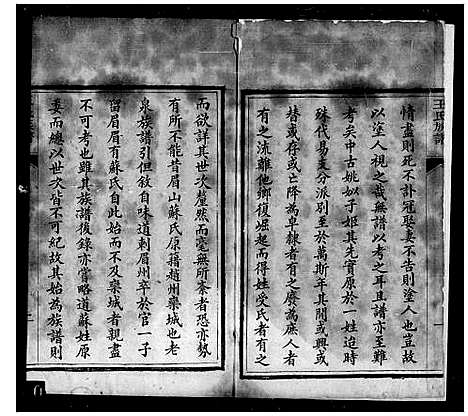 王氏族譜
情盡則死不訃冠娶妻不告則塗人也豈故
以塗人視之哉無譜以考之耳且譜亦至難
考矣中古姚姒子姬其先實原於一姓迨時
殊代易支分派別至於萬斯年其閒或興或
替或存或亡降為皁隸者有之賡為庶人者
有之流離他鄉復堀起而得姓受氏者有之
而欲詳其世次釐然而毫無所紊者恐亦勢
有所不能昔眉山蘇氏原籍趙州欒城也老
泉族譜引但敘自味道刺眉州卒於官一子
留眉眉有蘇氏自此始而不及欒城者親盡
不可考也雖其族譜後錄亦嘗略道蘇姓原
委而總以世次皆不可紀故其始為族譜則
一
二